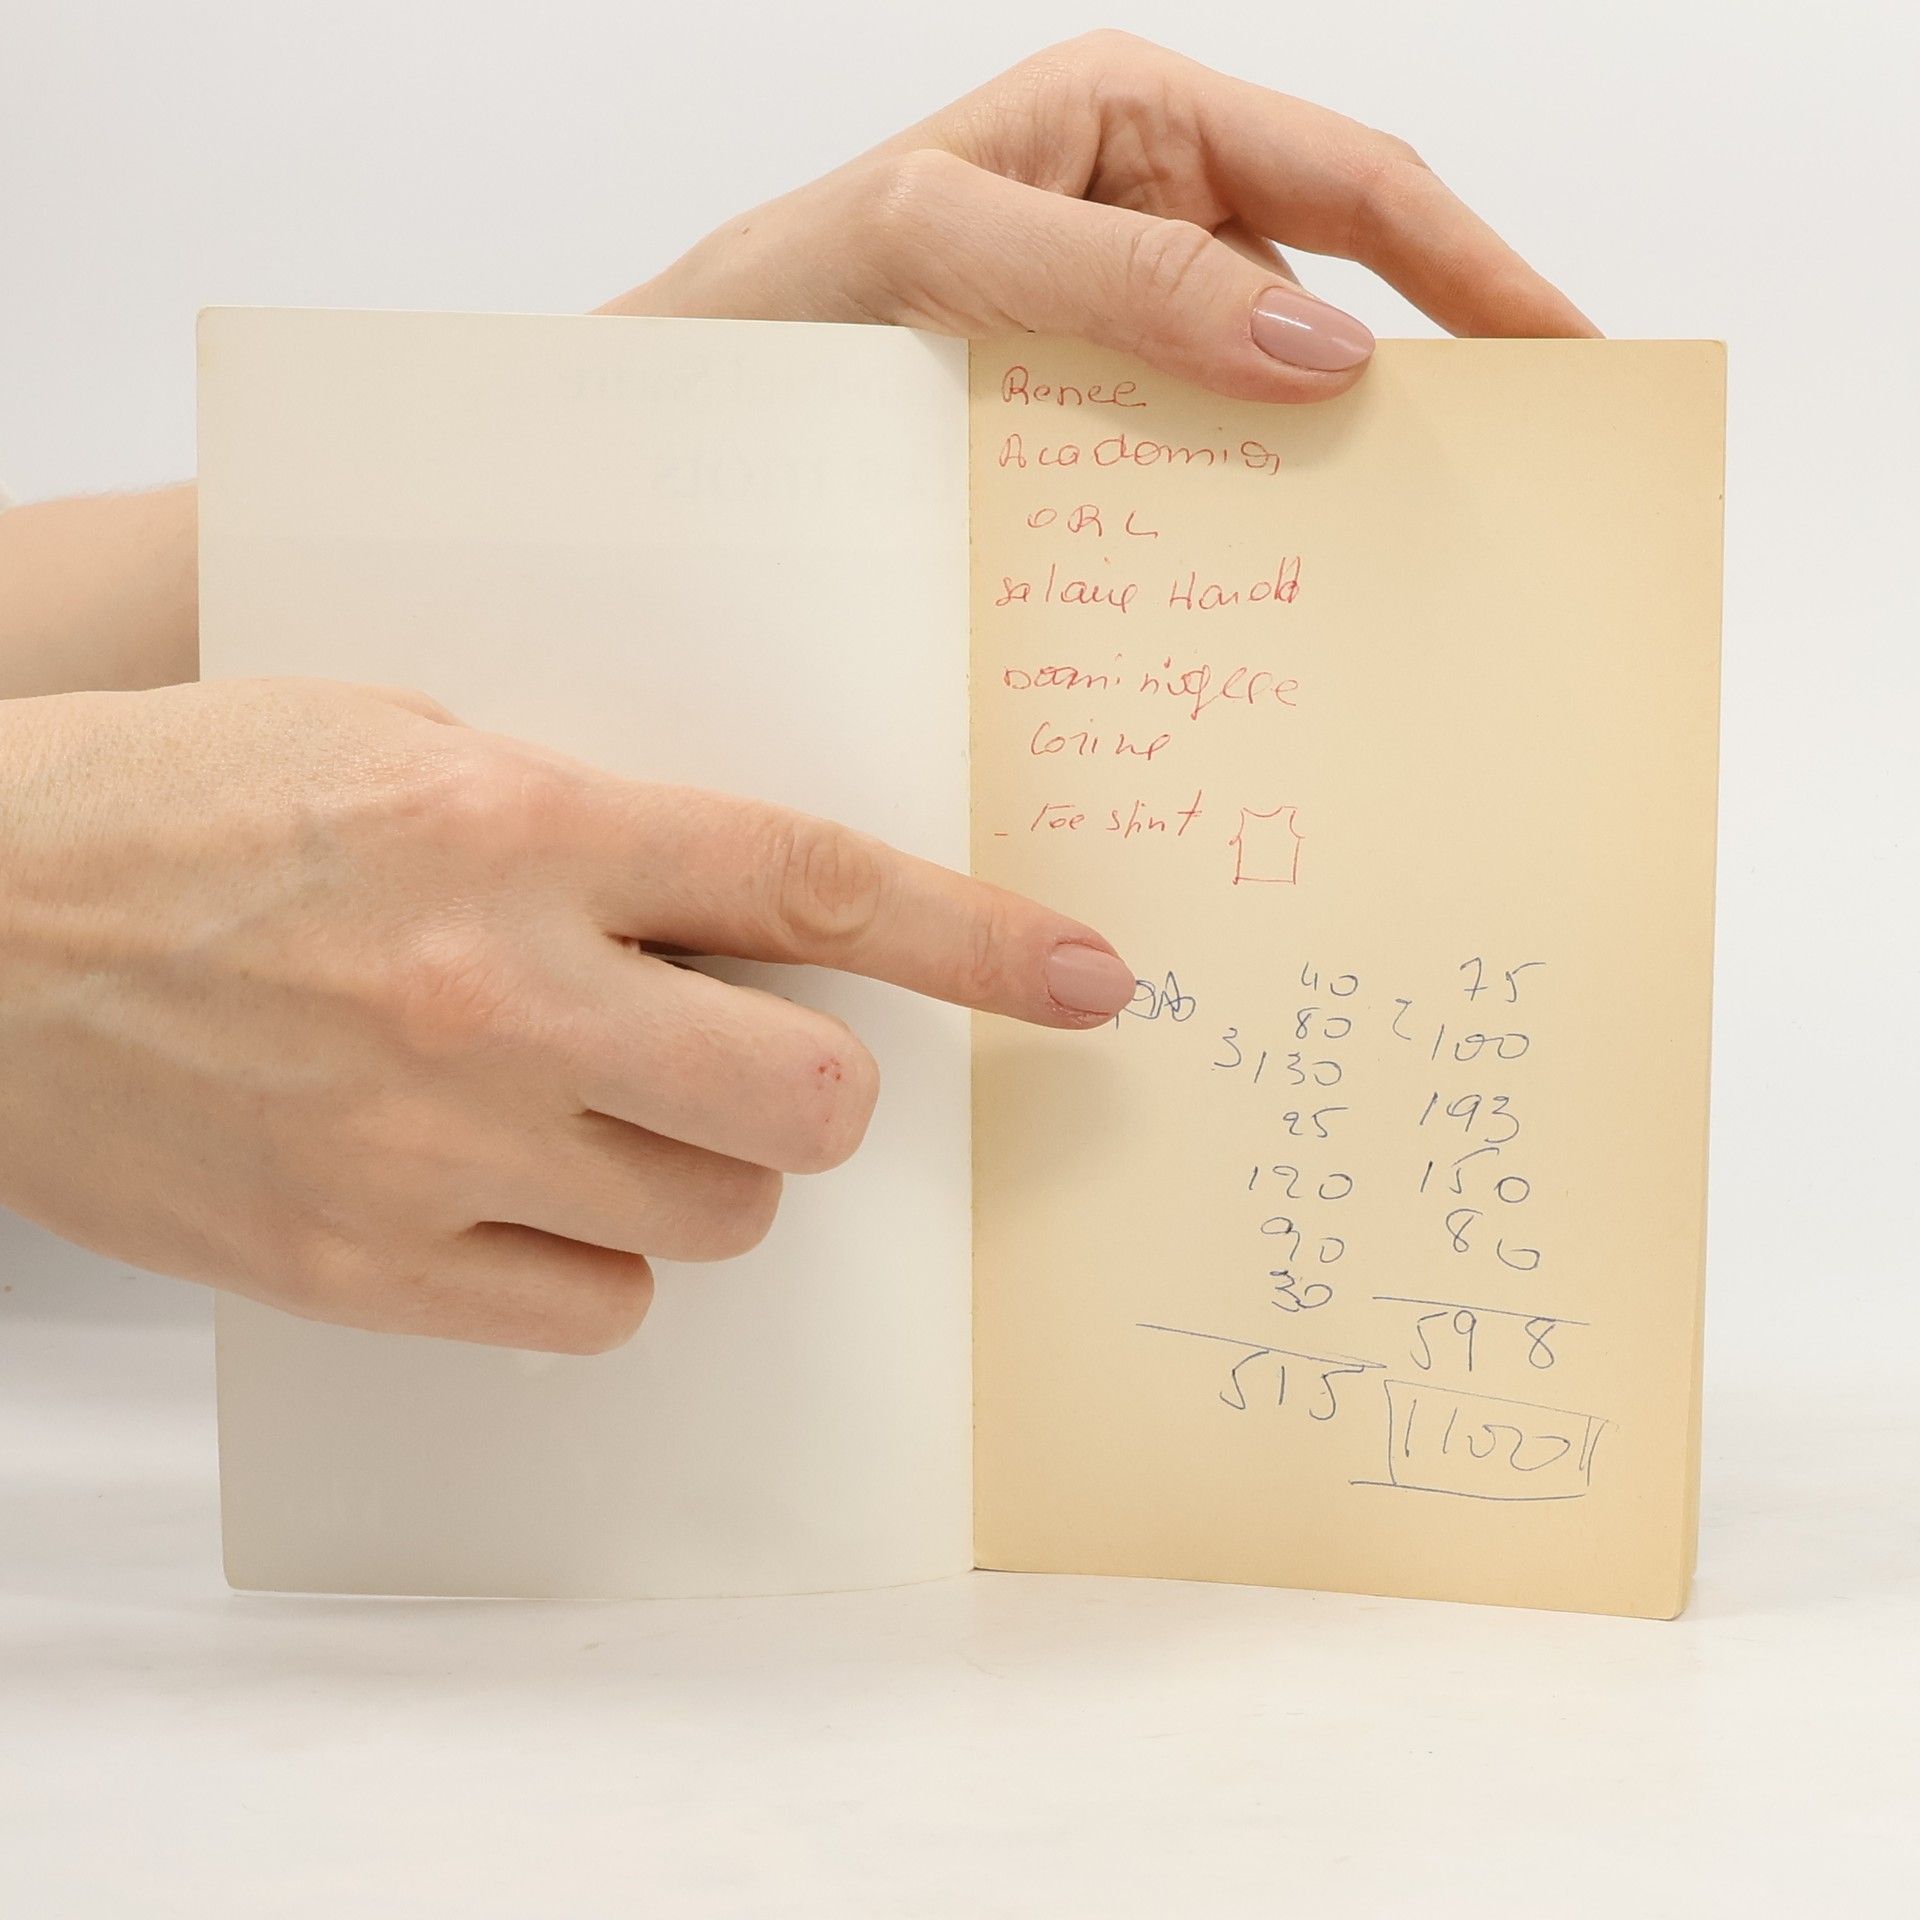 Renee
Academia
ORL
salaire Harold
Dominique
Corine
- Tee shirt
40
80
3 130
25
120
90
30
515
2
75
100
193
150
80
598
1100